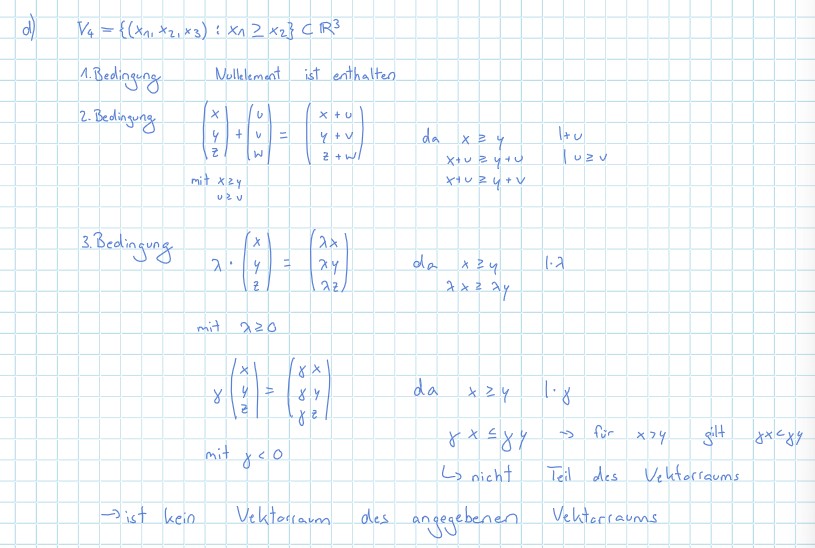 d) V₄ = {(x₁, x₂, x₃) : x₁ ≥ x₂} ⊂ ℝ³
1. Bedingung Nullelement ist enthalten
2. Bedingung (x y z) + (u v w) = (x + u y + v z + w) da x ≥ y |+u
x+u ≥ y+u | u ≥ v
x+u ≥ y+v
mit x ≥ y
u ≥ v
3. Bedingung λ · (x y z) = (λx λy λz) da x ≥ y |·λ
λx ≥ λy
mit λ ≥ 0
γ (x y z) = (γx γy γz) da x ≥ y |·γ
γx ≤ γy → für x > y gilt γx < γy
mit γ < 0
↳ nicht Teil des Vektorraums
→ ist kein Vektorraum des angegebenen Vektorraums